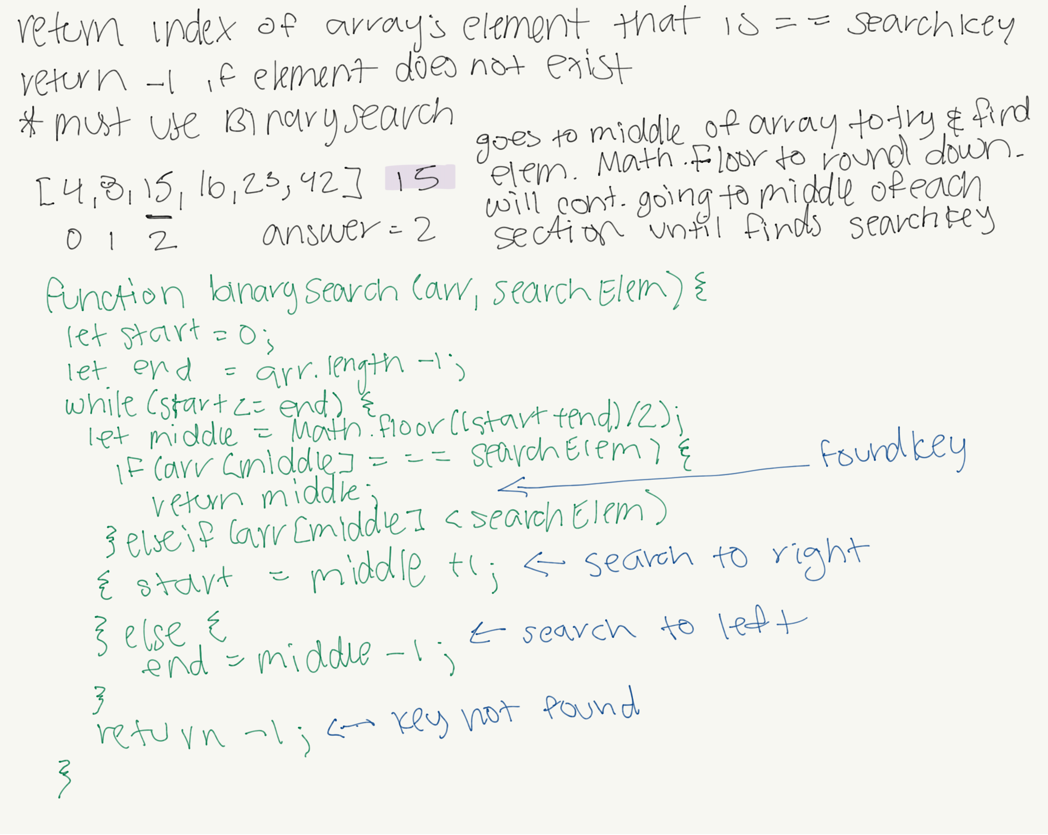 return index of array's element that is == searchkey
return -1 if element does not exist
* must use Binary search
goes to middle of array to try & find
elem. Math.floor to round down.
will cont. going to middle of each
section until finds searchkey
[4,8,15,16,23,42] 15
0 1 2 answer = 2
function binarySearch (arr, searchElem) {
let start = 0;
let end = arr.length -1;
while (start <= end) {
let middle = Math.floor((start + end)/2);
if (arr [middle] === searchElem) {
return middle;
← found key
} else if (arr[middle] < searchElem)
{ start = middle +1; ← search to right
} else {
← search to left
end = middle -1;
}
return -1; ← key not found
}